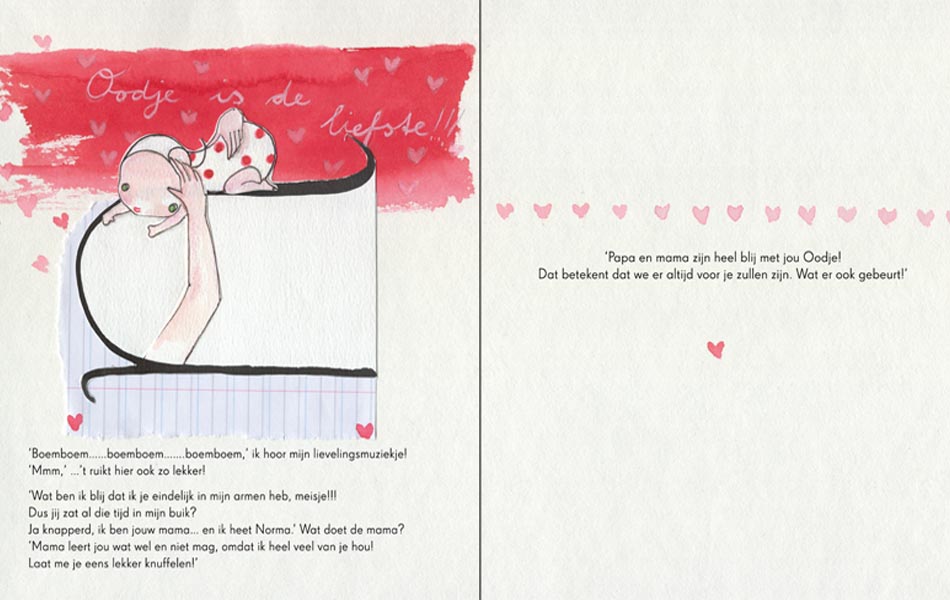 Oodje is de
liefste!!!
'Boemboem......boemboem.......boemboem,' ik hoor mijn lievelingsmuziekje!
'Mmm,' ...'t ruikt hier ook zo lekker!
'Wat ben ik blij dat ik je eindelijk in mijn armen heb, meisje!!!
Dus jij zat al die tijd in mijn buik?
Ja knapperd, ik ben jouw mama... en ik heet Norma.' Wat doet de mama?
'Mama leert jou wat wel en niet mag, omdat ik heel veel van je hou!
Laat me je eens lekker knuffelen!'
'Papa en mama zijn heel blij met jou Oodje!
Dat betekent dat we er altijd voor je zullen zijn. Wat er ook gebeurt!'